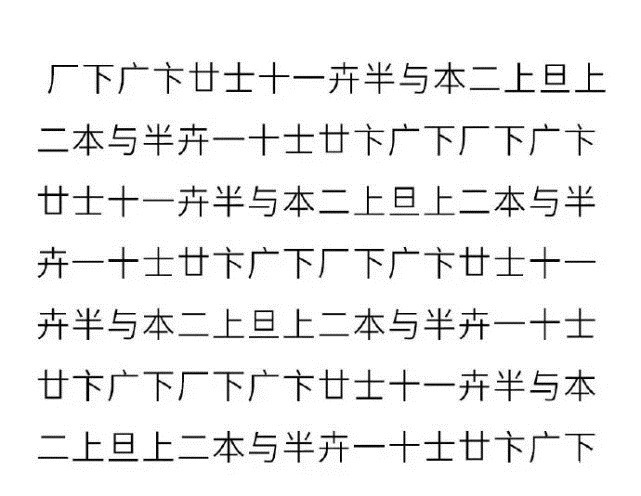 厂下广卞廿士十一卉半与本二上旦上
二本与半卉一十士廿卞广下厂下广卞
廿士十一卉半与本二上旦上二本与半
卉一十士廿卞广下厂下广卞廿士十一
卉半与本二上旦上二本与半卉一十士
廿卞广下厂下广卞廿士十一卉半与本
二上旦上二本与半卉一十士廿卞广下